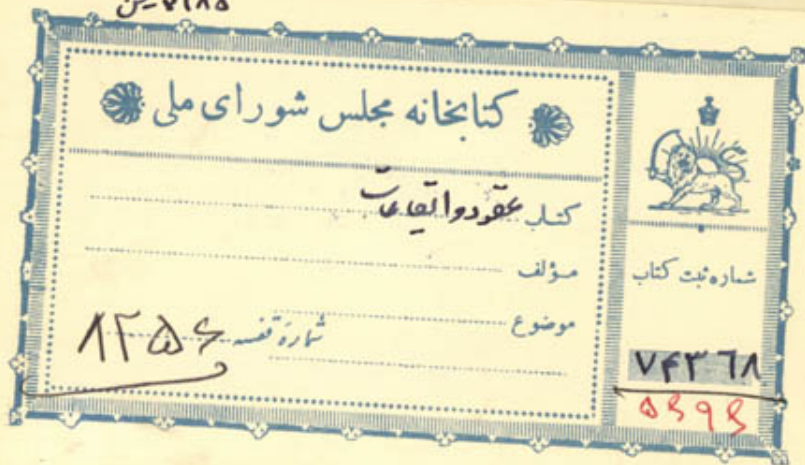 کتابخانه مجلس شورای ملی
کتاب عقود و ایقاعات
مؤلف
موضوع
شماره قفسه ۸۲۵۶
شماره ثبت کتاب
۷۴۳۶۸